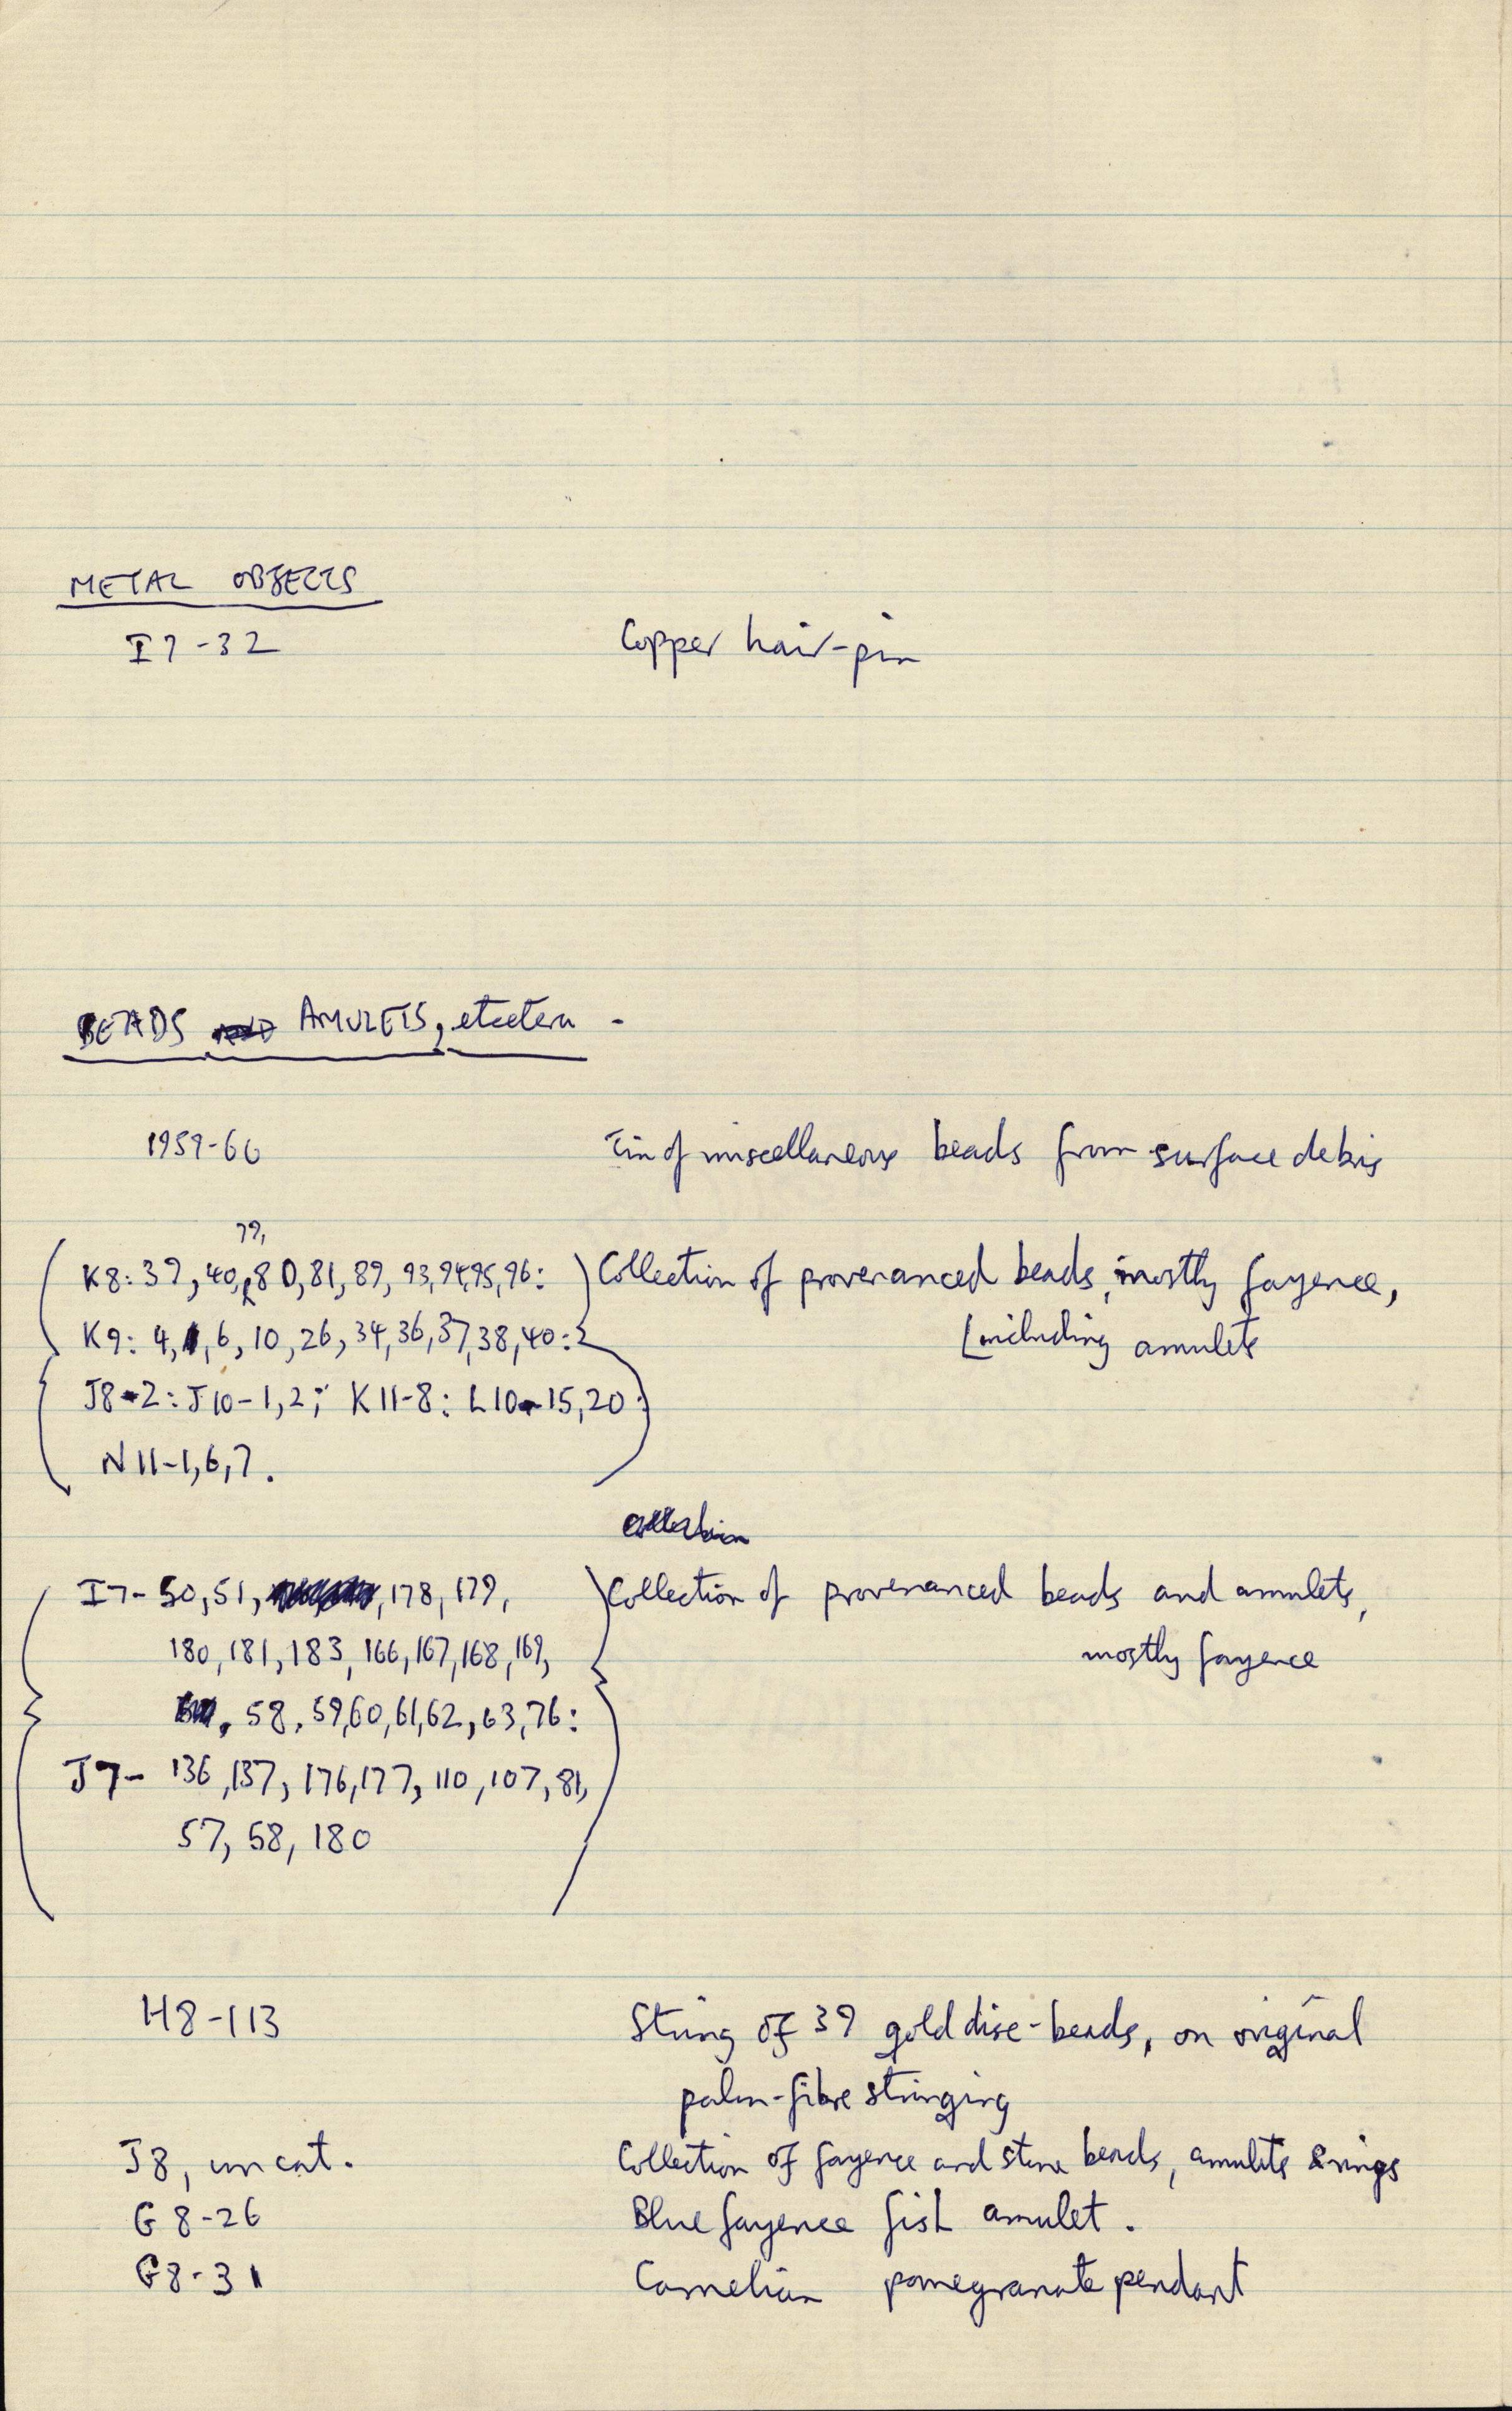 METAL OBJECTS
I7-32 Copper hair-pin
BEADS AND AMULETS, etcetera -
1959-66 Tin of miscellaneous beads from surface debris
79,
K8: 39, 40, 80, 81, 89, 93, 94, 95, 96: Collection of provenanced beads, mostly fayence,
K9: 4, 6, 10, 26, 34, 36, 37, 38, 40: [including amulets
J8-2: J10-1,2; K11-8: L10-15,20:
N11-1,6,7.
collection
I7-50, 51, , 178, 179, Collection of provenanced beads and amulets,
180, 181, 183, 166, 167, 168, 169, mostly fayence
58, 59, 60, 61, 62, 63, 76:
J7- 136, 137, 176, 177, 110, 107, 81,
57, 58, 180
H8-113 String of 39 gold disc-beads, on original
palm-fibre stringing
J8, uncat. Collection of fayence and stone beads, amulets & rings
G8-26 Blue fayence fish amulet.
G8-31 Carnelian pomegranate pendant